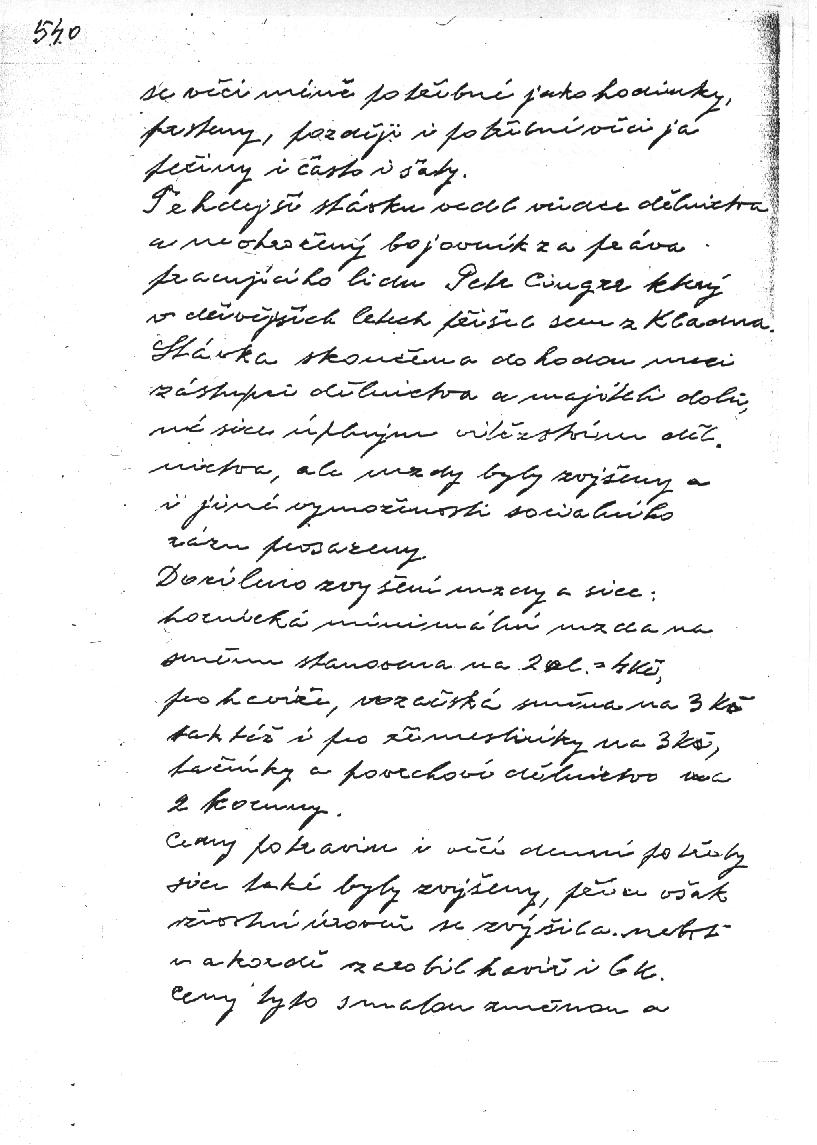 540
se věci méně potřebné jako hodinky,
prsteny, později i potřební věci ja
peřiny i často i šaty.
Tehdejší stávku vedl vůdce dělnictva
a neohrožený bojovník za práva
pracujícího lidu Petr Cingrr který
v dřívějších letech přišel sem z Kladna.
Stávka skončena dohodou mezi
zástupci dělnictva a majiteli dolů,
né sice úplným vítězstvím děl.
nictva, ale mzdy byly zvýšeny a
i jiné vymoženosti socialního
rázu prosazeny
Docíleno zvýšení mzdy a sice:
hornická minimální mzda na
směnu stanovena na 2 zl. = 4 Kč,
pro havíře, vozačská směna na 3 Kč
taktéž i pro řemeslníky na 3 Kč,
tačníky a povrchové dělnictvo na
2 koruny.
Ceny potravin i věcí denní potřeby
sice také byly zvýšeny, přece však
životní úroveň se zvýšila. nebot
v akordě zarobil havíř i 6 K.
Ceny tyto s malou změnou a